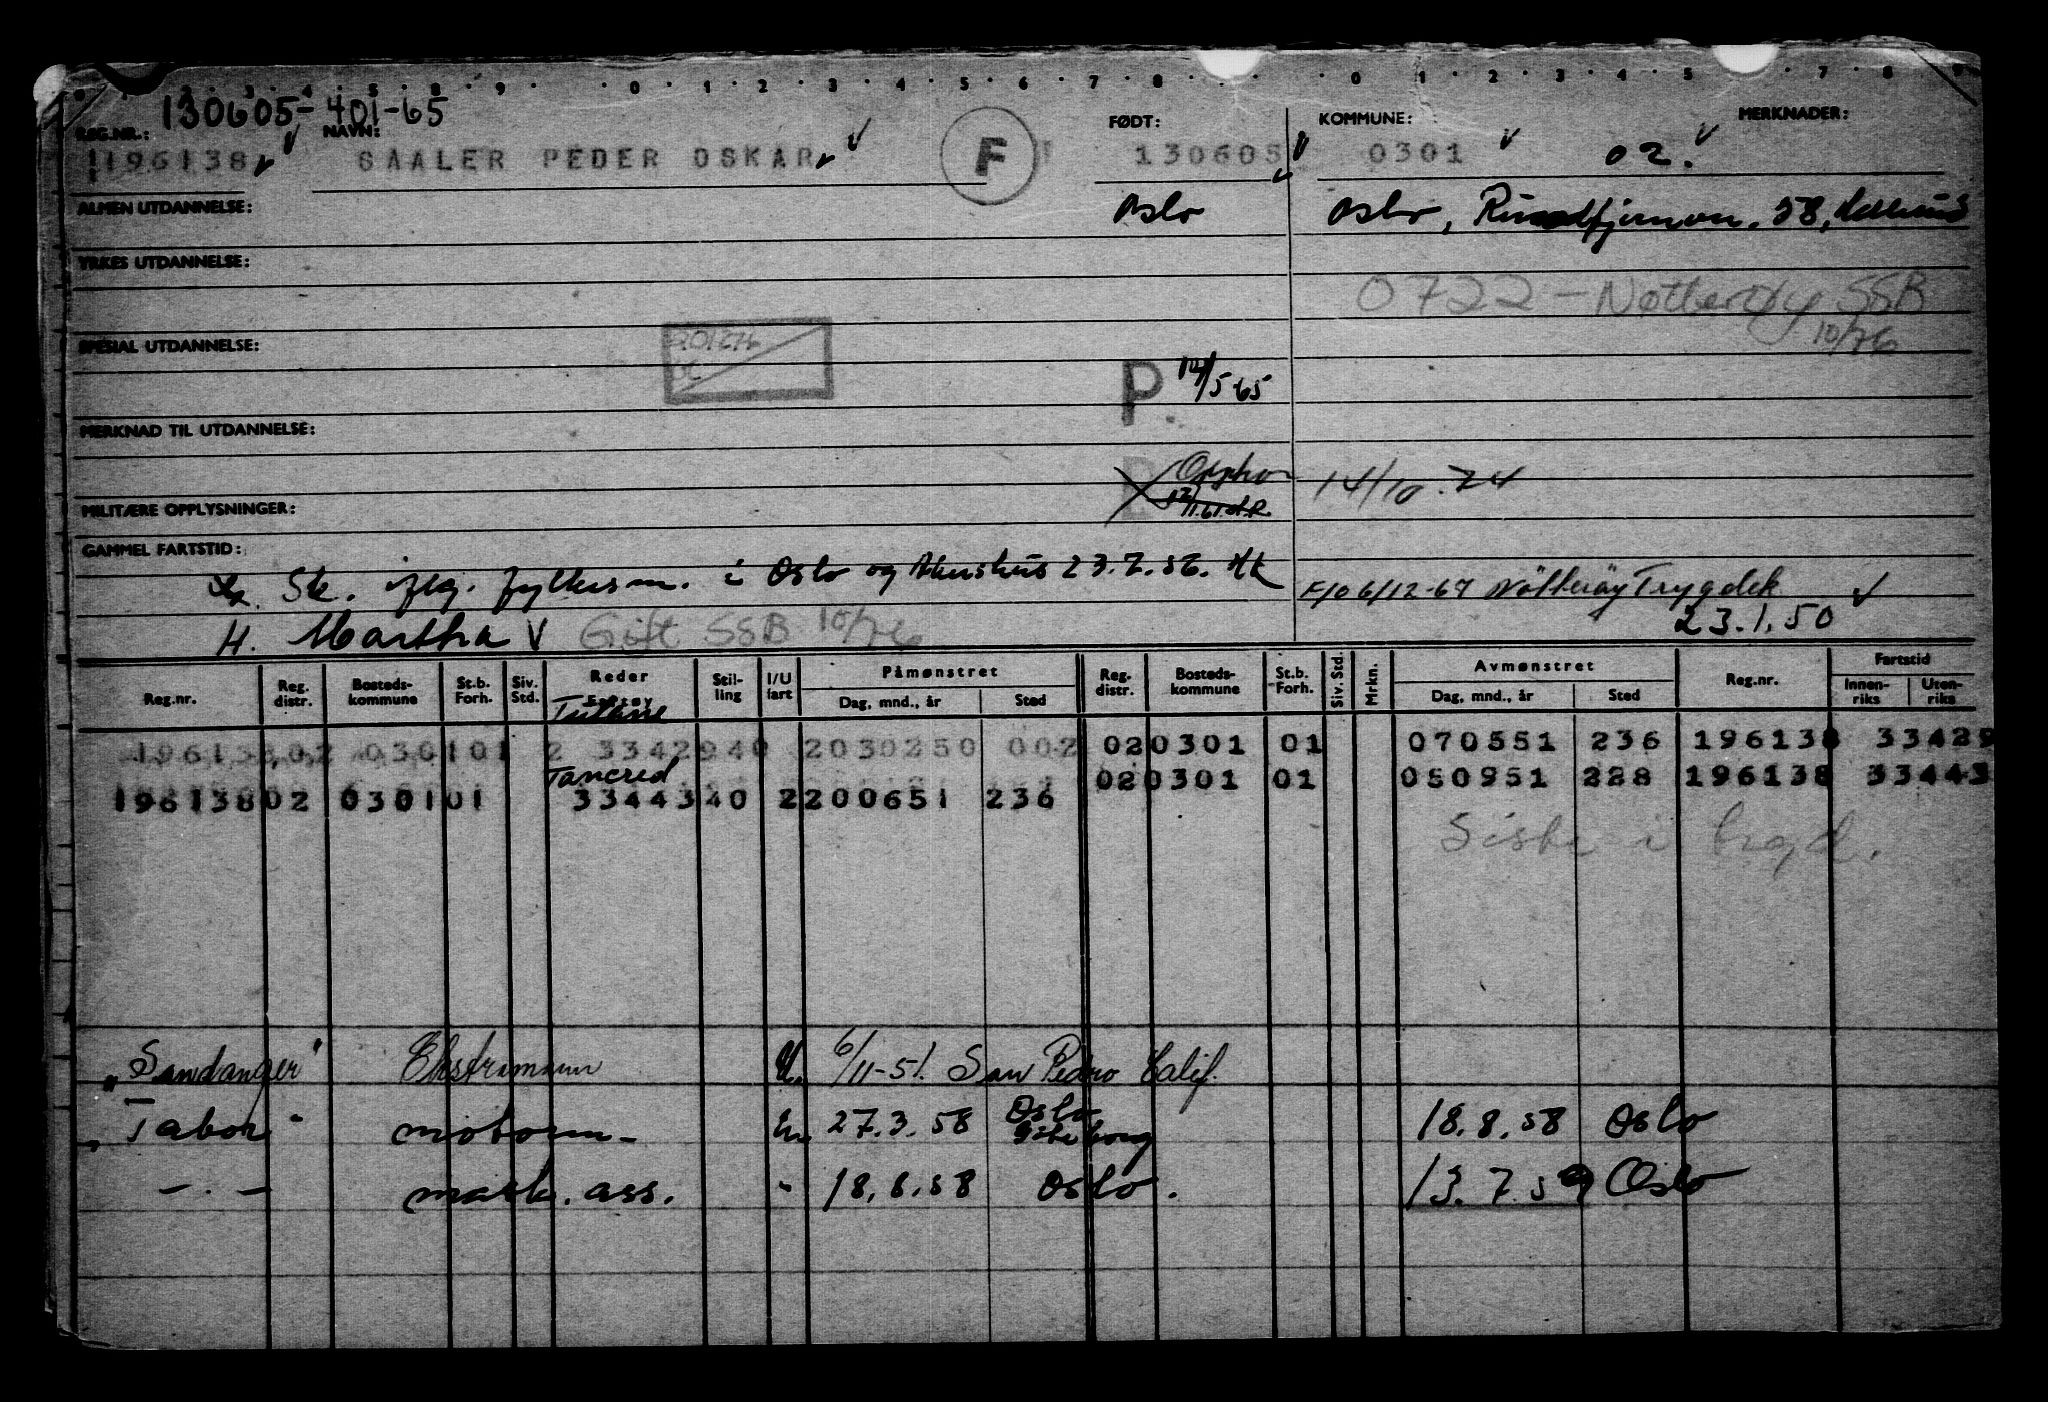 130605-401-65
REG.NR.: NAVN: FØDT: KOMMUNE: MERKNADER:
196138 SAALER PEDER OSKAR F 130605 0301 02.
ALMEN UTDANNELSE: Oslo Oslo, 58,
YRKES UTDANNELSE:
0722 - Nøtterøy SSB
10/76
SPESIAL UTDANNELSE:
P 12/5-65
MERKNAD TIL UTDANNELSE:
14/10.74
MILITÆRE OPPLYSNINGER:
GAMMEL FARTSTID:
Sk. iflg. fylkesm. i Oslo og Akershus 23.7.56.
F/O 6/12-67 Nøtterøy Trygdek
H. Martha V Gift SSB 10/76 23.1.50
Reg.nr. Reg. distr. Bosteds-kommune St.b. Forh. Siv. Std. Reder Stil-ling I/U fart Påmønstret Dag, mnd., år Sted Reg. distr. Bosteds-kommune St.b. Forh. Siv. Std. Mrkn. Avmønstret Dag, mnd., år Sted Reg.nr. Fartstid Innen-riks Uten-riks
196138 02 0301 01 2 33429 40 2 030250 002 02 0301 01 070551 236 196138 33429
Tancred
196138 02 0301 01 33443 40 2 200651 236 02 0301 01 050951 228 196138 33443
Siste i trygd.
"Sandanger" Ekstramann U. 6/11-51. San Pedro Calif.
"Tabor" motorm. 27.3.58 Oslo Göteborg 18.8.58 Oslo
- . - mask. ass. - 18.8.58 Oslo. 13.7.59 Oslo